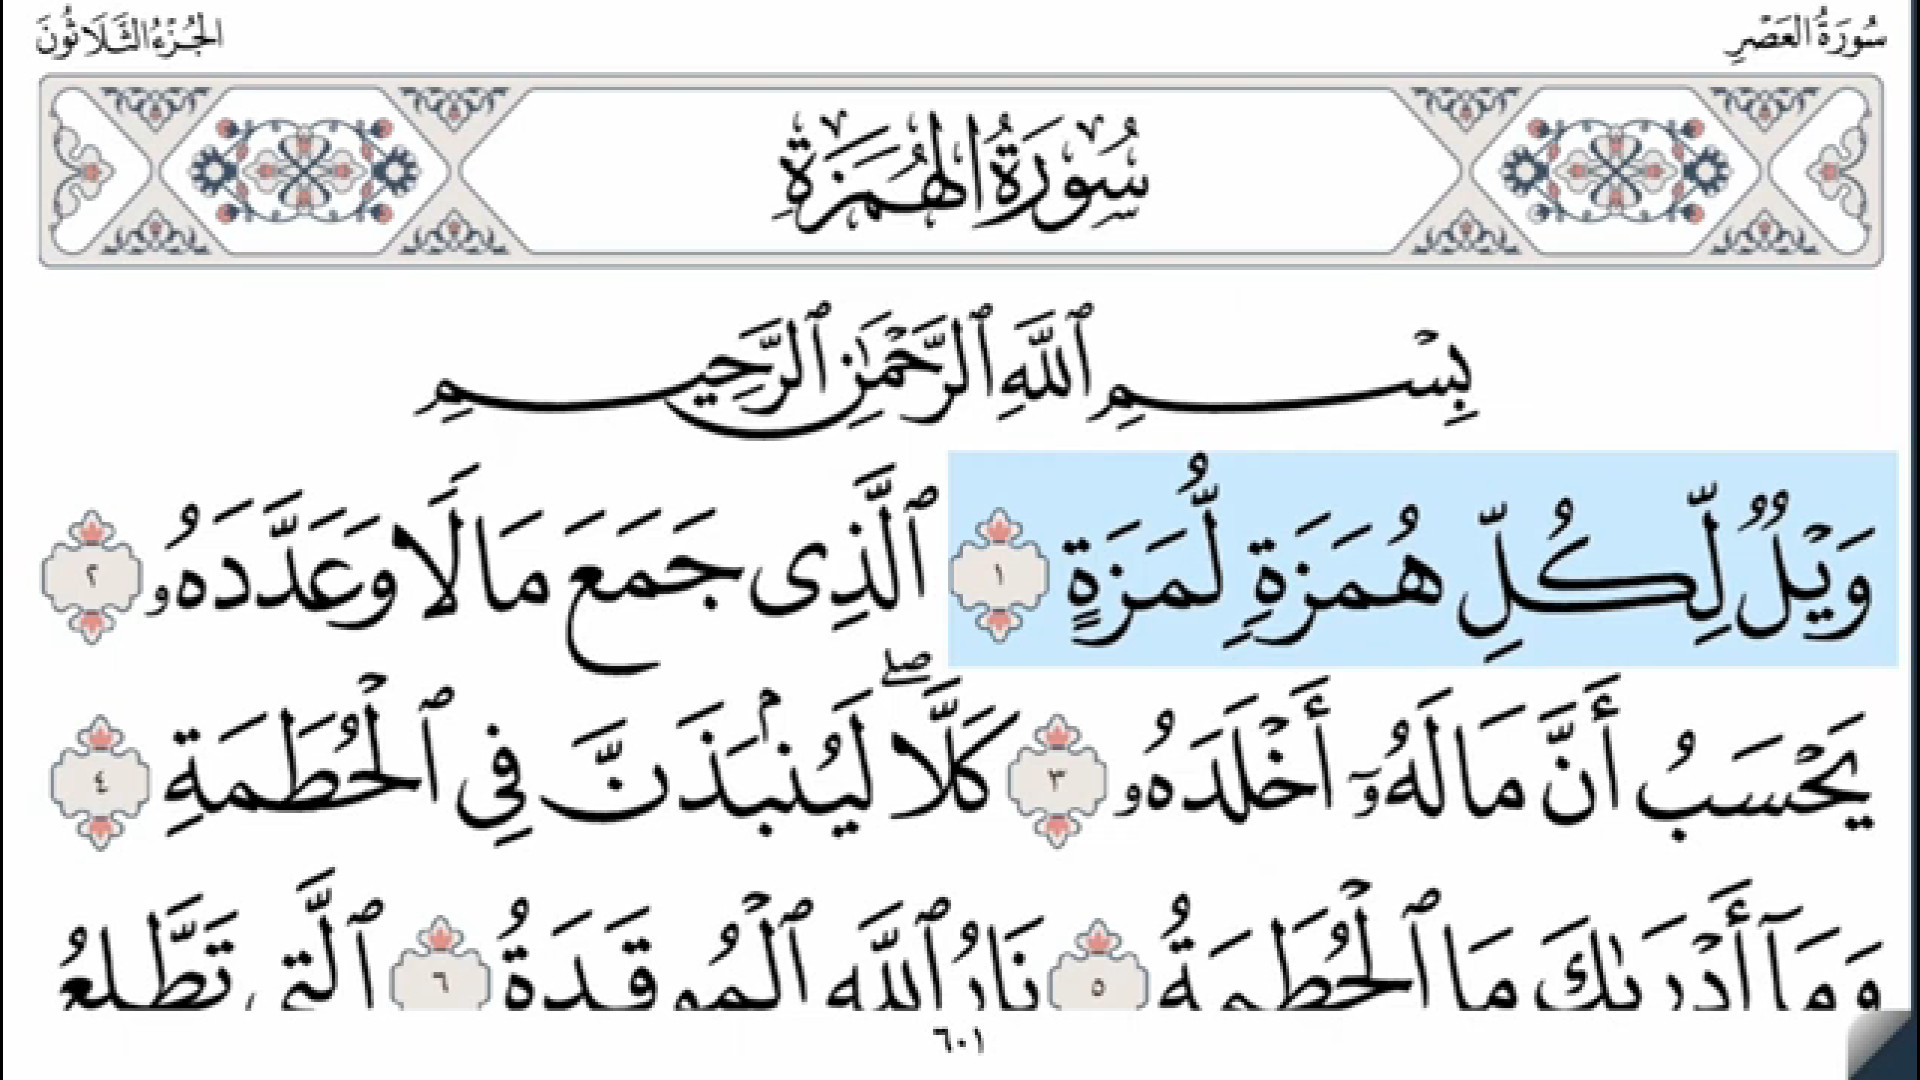 سُورَةُ العَصْرِ
الجُزْءُ الثَّلَاثُونَ
سُورَةُ الهُمَزَةِ
بِسْمِ ٱللَّهِ ٱلرَّحْمَٰنِ ٱلرَّحِيمِ
وَيْلٌ لِّكُلِّ هُمَزَةٍ لُّمَزَةٍ ١ ٱلَّذِى جَمَعَ مَالًا وَعَدَّدَهُۥ ٢
يَحْسَبُ أَنَّ مَالَهُۥٓ أَخْلَدَهُۥ ٣ كَلَّاۖ لَيُنۢبَذَنَّ فِى ٱلْحُطَمَةِ ٤
وَمَآ أَدْرَىٰكَ مَا ٱلْحُطَمَةُ ٥ نَارُ ٱللَّهِ ٱلْمُوقَدَةُ ٦ ٱلَّتِى تَطَّلِعُ
٦٠١